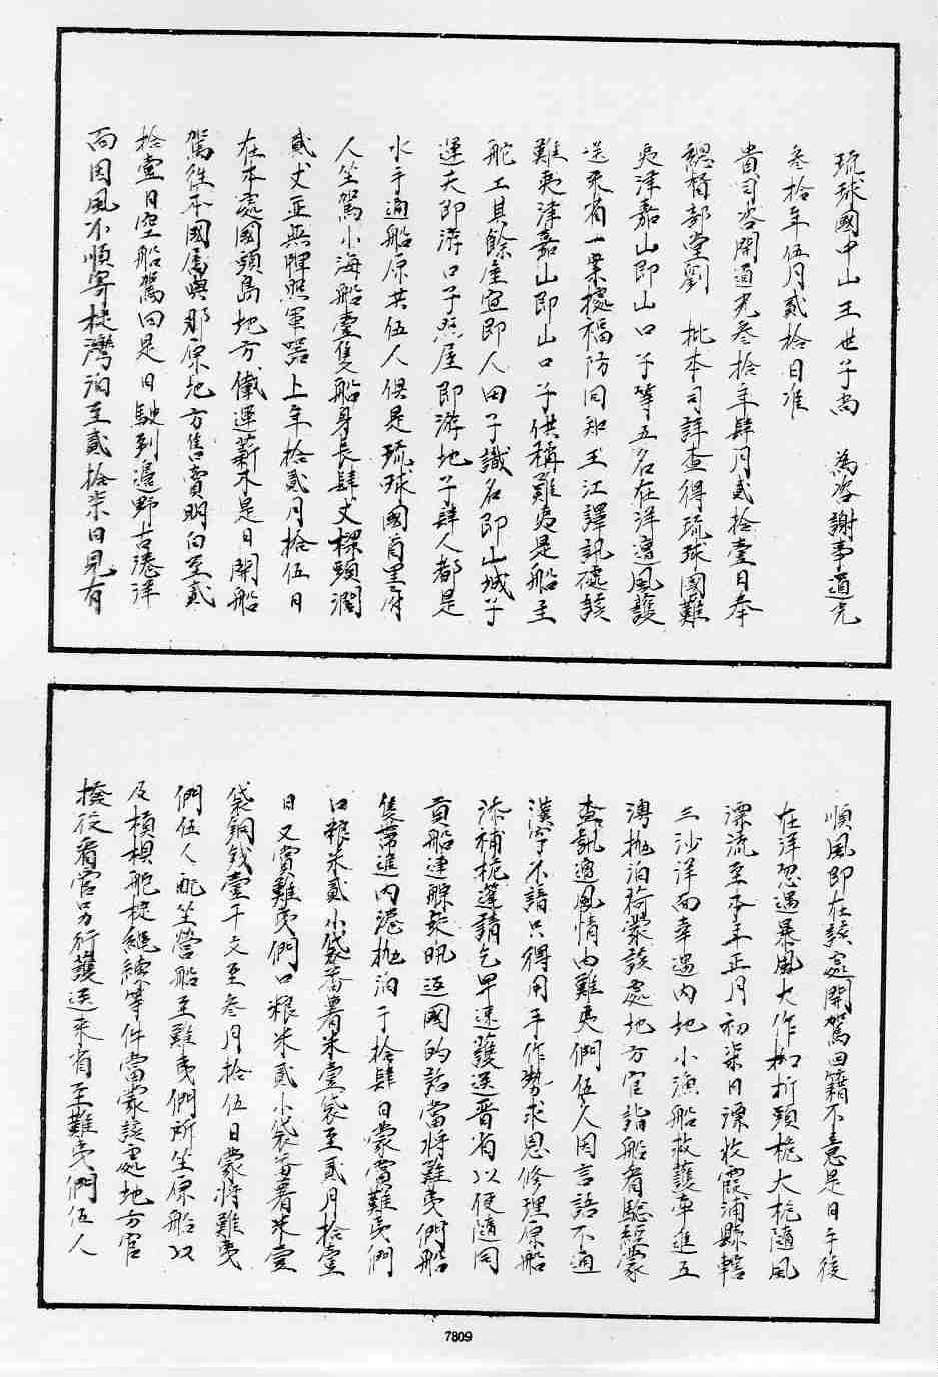 琉球國中山王世子尚　為咨謝事道光
叁拾年伍月貳拾日准
貴司咨開道光叁拾年肆月貳拾壹日奉
總督部堂劉　批本司詳查得琉球國難
夷津嘉山即山口子等五名在洋遭風護
送來省一案據福防同知王江譯訊據該
難夷津嘉山即山口子供稱難夷是船主
舵工其餘唐宜即人田子識名即山城子
運天即游口子照屋即游地子肆人都是
水手通船原共伍人俱是琉球國首里府
人坐駕小海船壹隻船身長肆丈樑頭濶
貳丈並無牌照軍器上年拾貳月拾伍日
在本處國頭島地方儎運薪木是日開船
駕往本國属與那原地方售賣明白至貳
拾壹日空船駕回是日駛到邊野古港洋
面因風不順寄椗灣泊至貳拾柒日見有
順風即在該處開駕回籍不意是日午後
在洋忽遇暴風大作折頭桅大桅隨風
漂流至本年正月初柒日漂收霞浦縣轄
三沙洋面幸遇内地小漁船救護牽進五
澚抛泊荷蒙該處地方官詣船看驗經蒙
查訊遭風情由難夷們伍人因言語不通
漢字不諳只得用手作勢求恩修理原船
添補桅篷請乞早速護送晋省以便隨同
貢船連䑸趁汛返國的話當将難夷們船
隻帶進内港抛泊于拾肆日蒙賞難夷們
口粮米貳小袋畨薯米壹袋至貳月拾壹
日又賞難夷們口粮米貳小袋畨薯米壹
袋銅錢壹千文至叁月拾伍日蒙将難夷
們伍人配坐營船至難夷們所坐原船以
及槓椇舵椗繩索等件當蒙該處地方官
撥役看管另行護送来省至難夷們伍人
7809